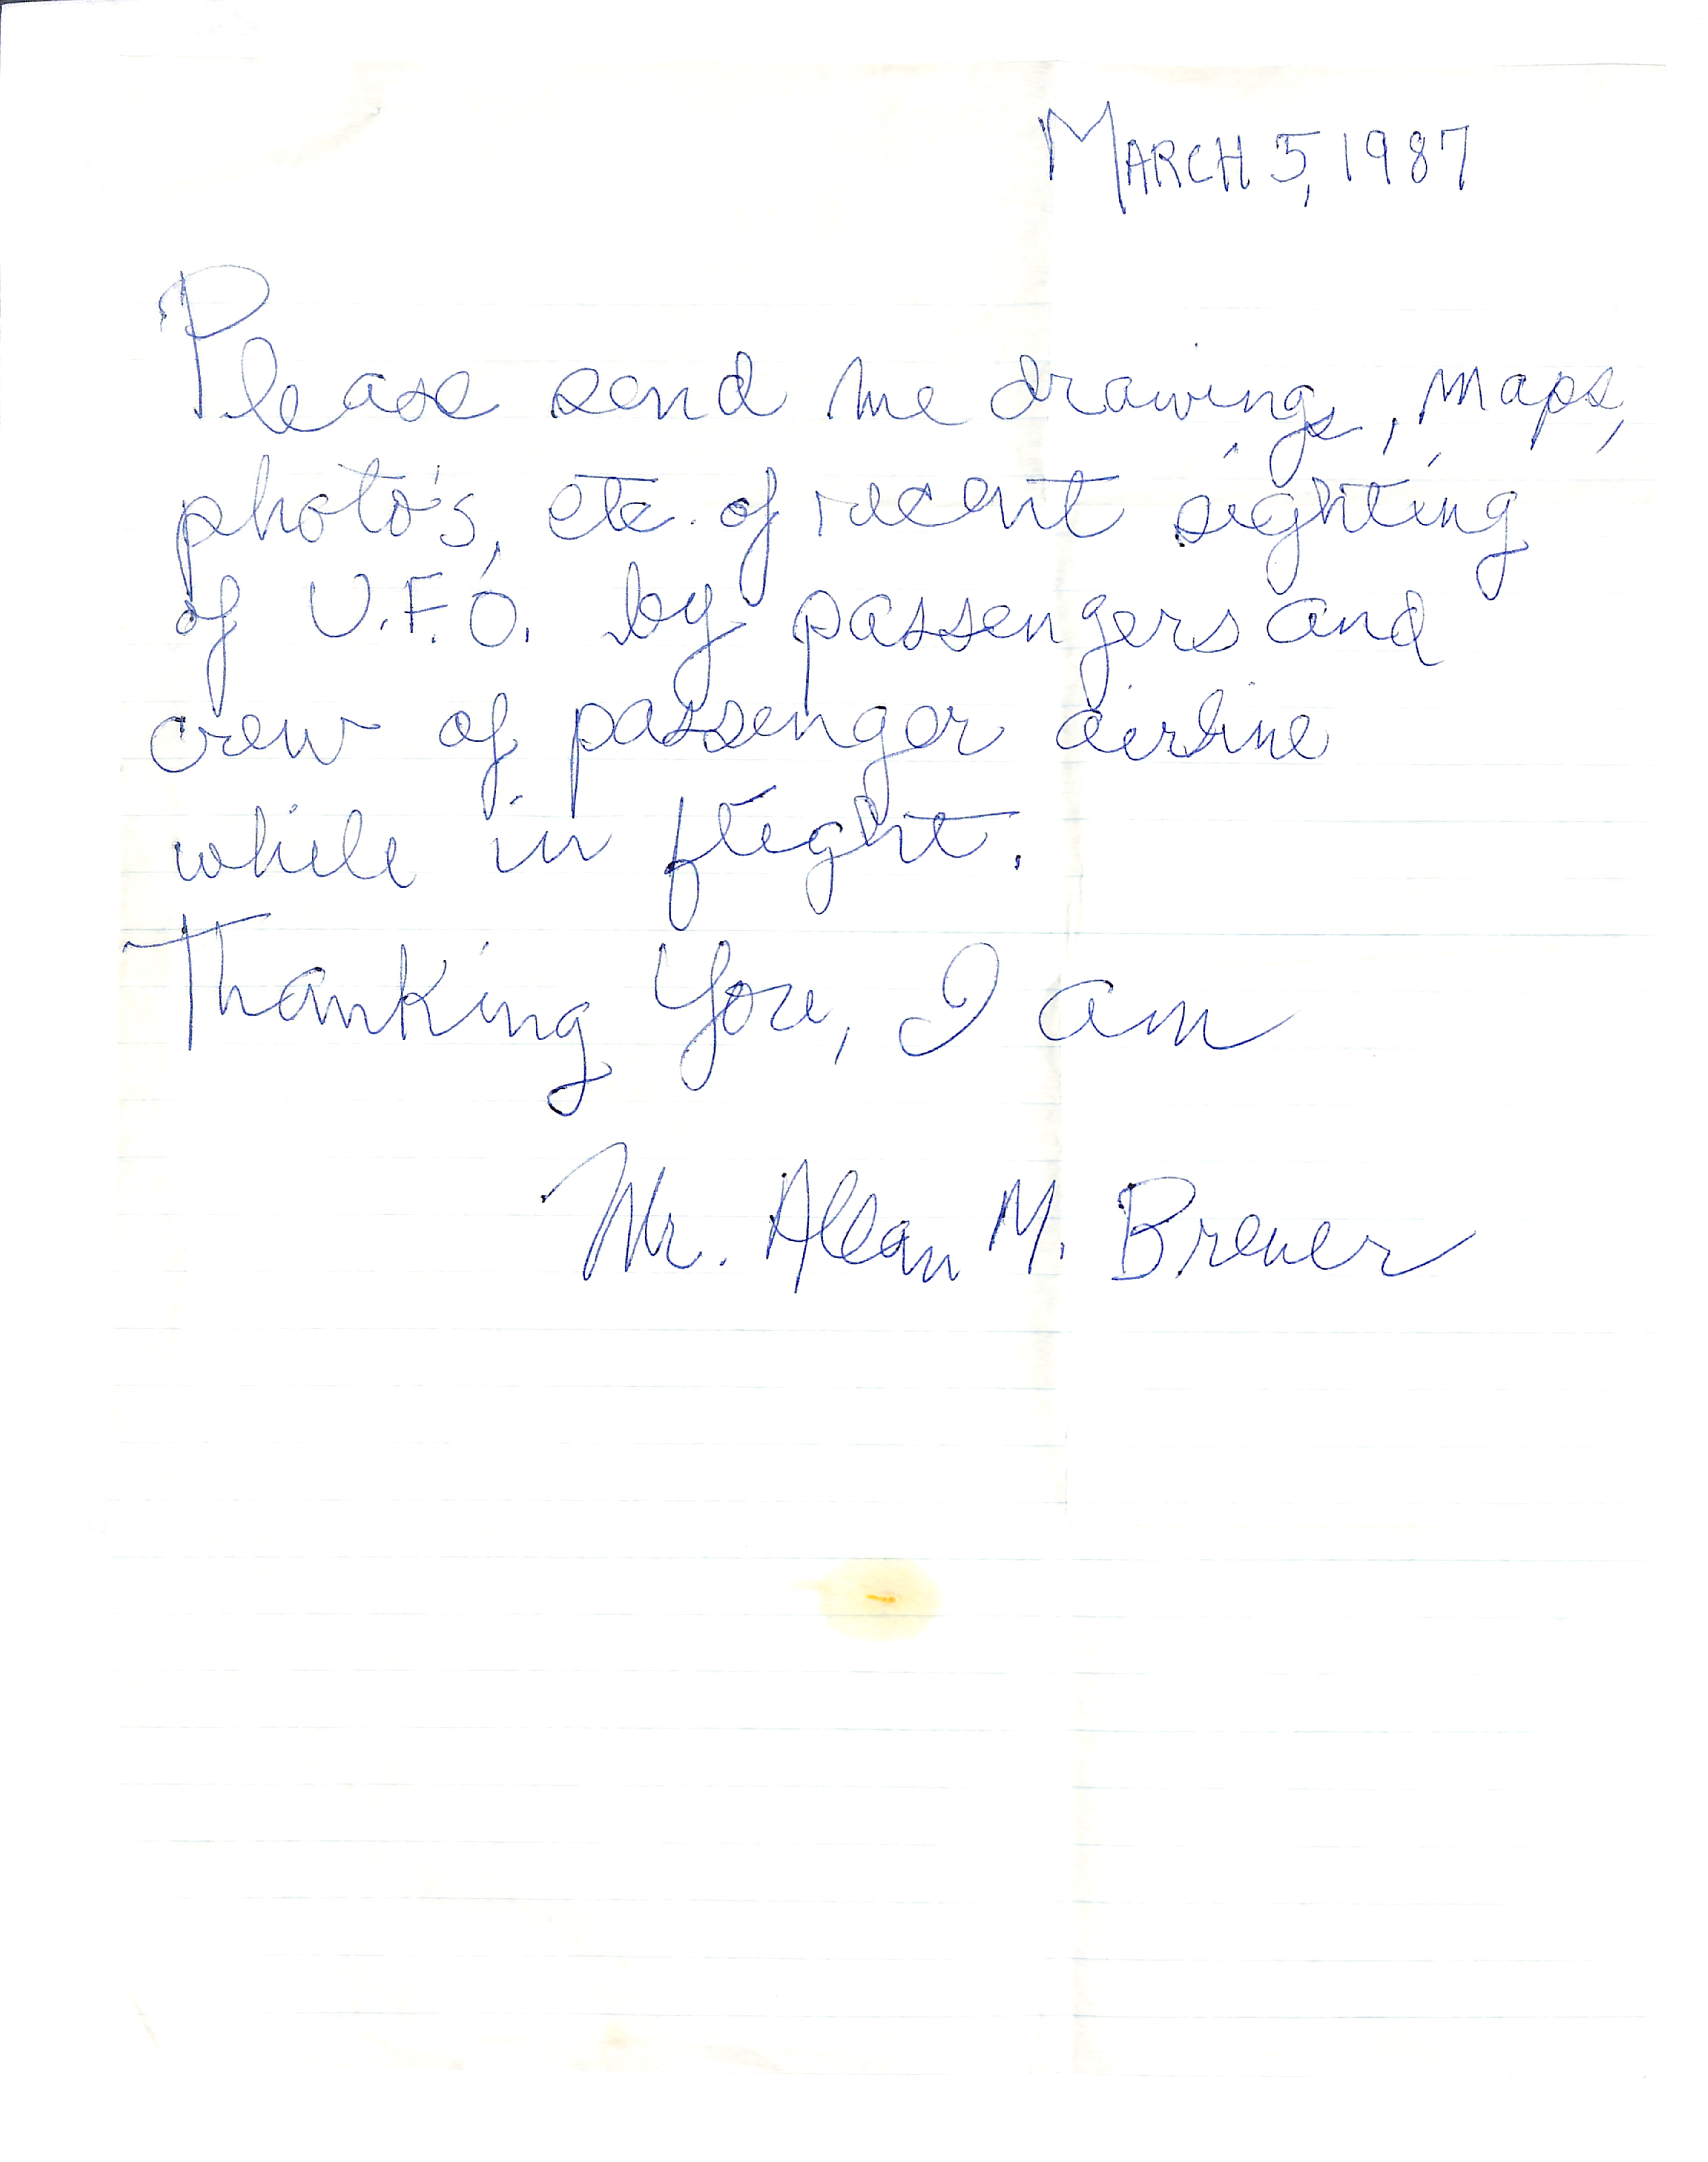 MARCH 5, 1987
Please send me drawings, maps,
photo's, etc. of recent sighting
of U.F.O. by passengers and
crew of passenger airline
while in flight.
Thanking You, I am
Mr. Allan M. Brewer